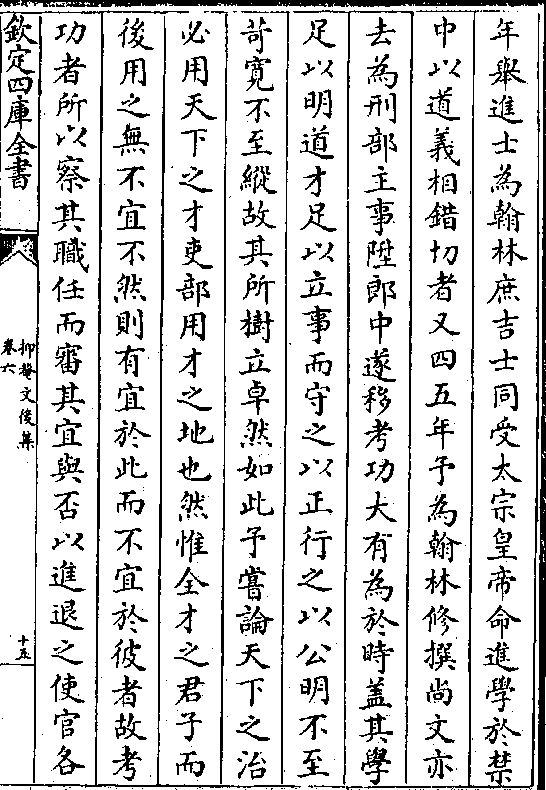 年舉進士為翰林庶吉士同受太宗皇帝命進學於禁
中以道義相錯切者又四五年予為翰林修撰尚文亦
去為刑部主事陞郎中遂移考功大有為於時盖其學
足以明道才足以立事而守之以正行之以公明不至
苛寛不至縱故其所樹立卓然如此予嘗論天下之治
必用天下之才吏部用才之地也然惟全才之君子而
後用之無不宜不然則有宜於此而不宜於彼者故考
功者所以察其職任而審其宜與否以進退之使官各
欽定四庫全書
抑菴文後集
卷六
十五